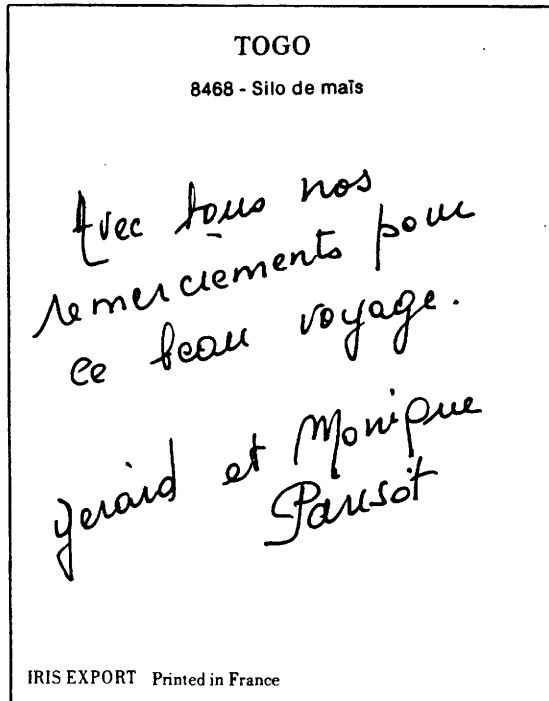 TOGO
8468 - Silo de maïs
Avec tous nos
remerciements pour
ce beau voyage.
Gérard et Monique
Parisot
IRIS EXPORT Printed in France